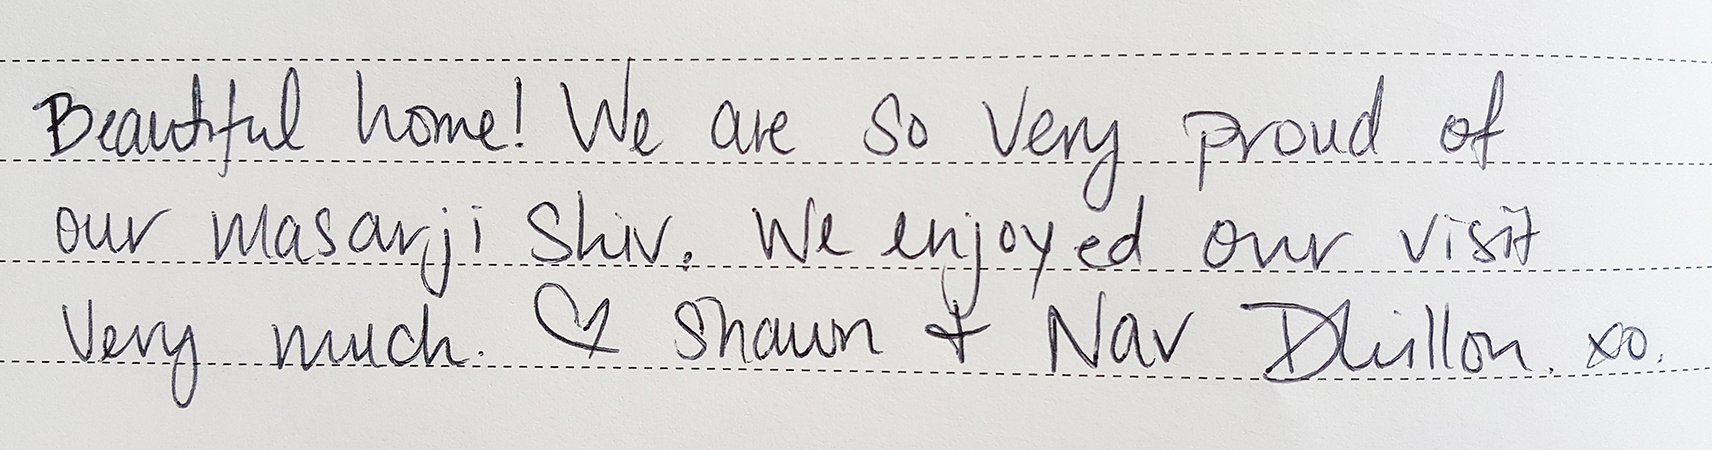 Beautiful home! We are so very proud of
our masarji Shiv. We enjoyed our visit
Very much. ♡ Shaun + Nav Dhillon. xo.